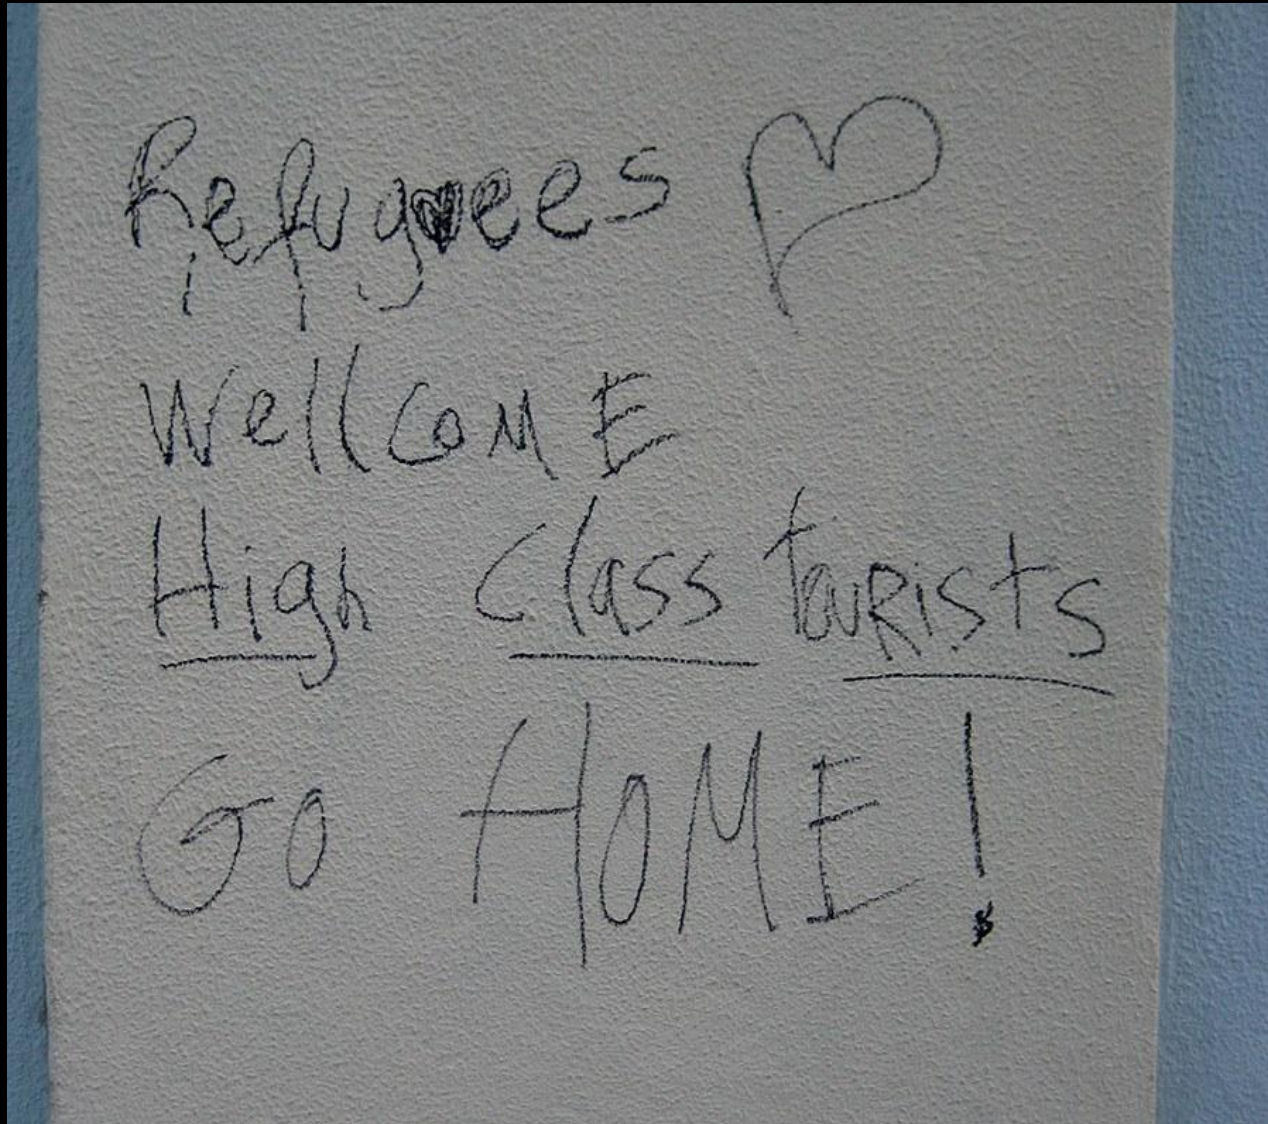 Refugees ♡
WellcoME
High Class touRists
Go HoME!